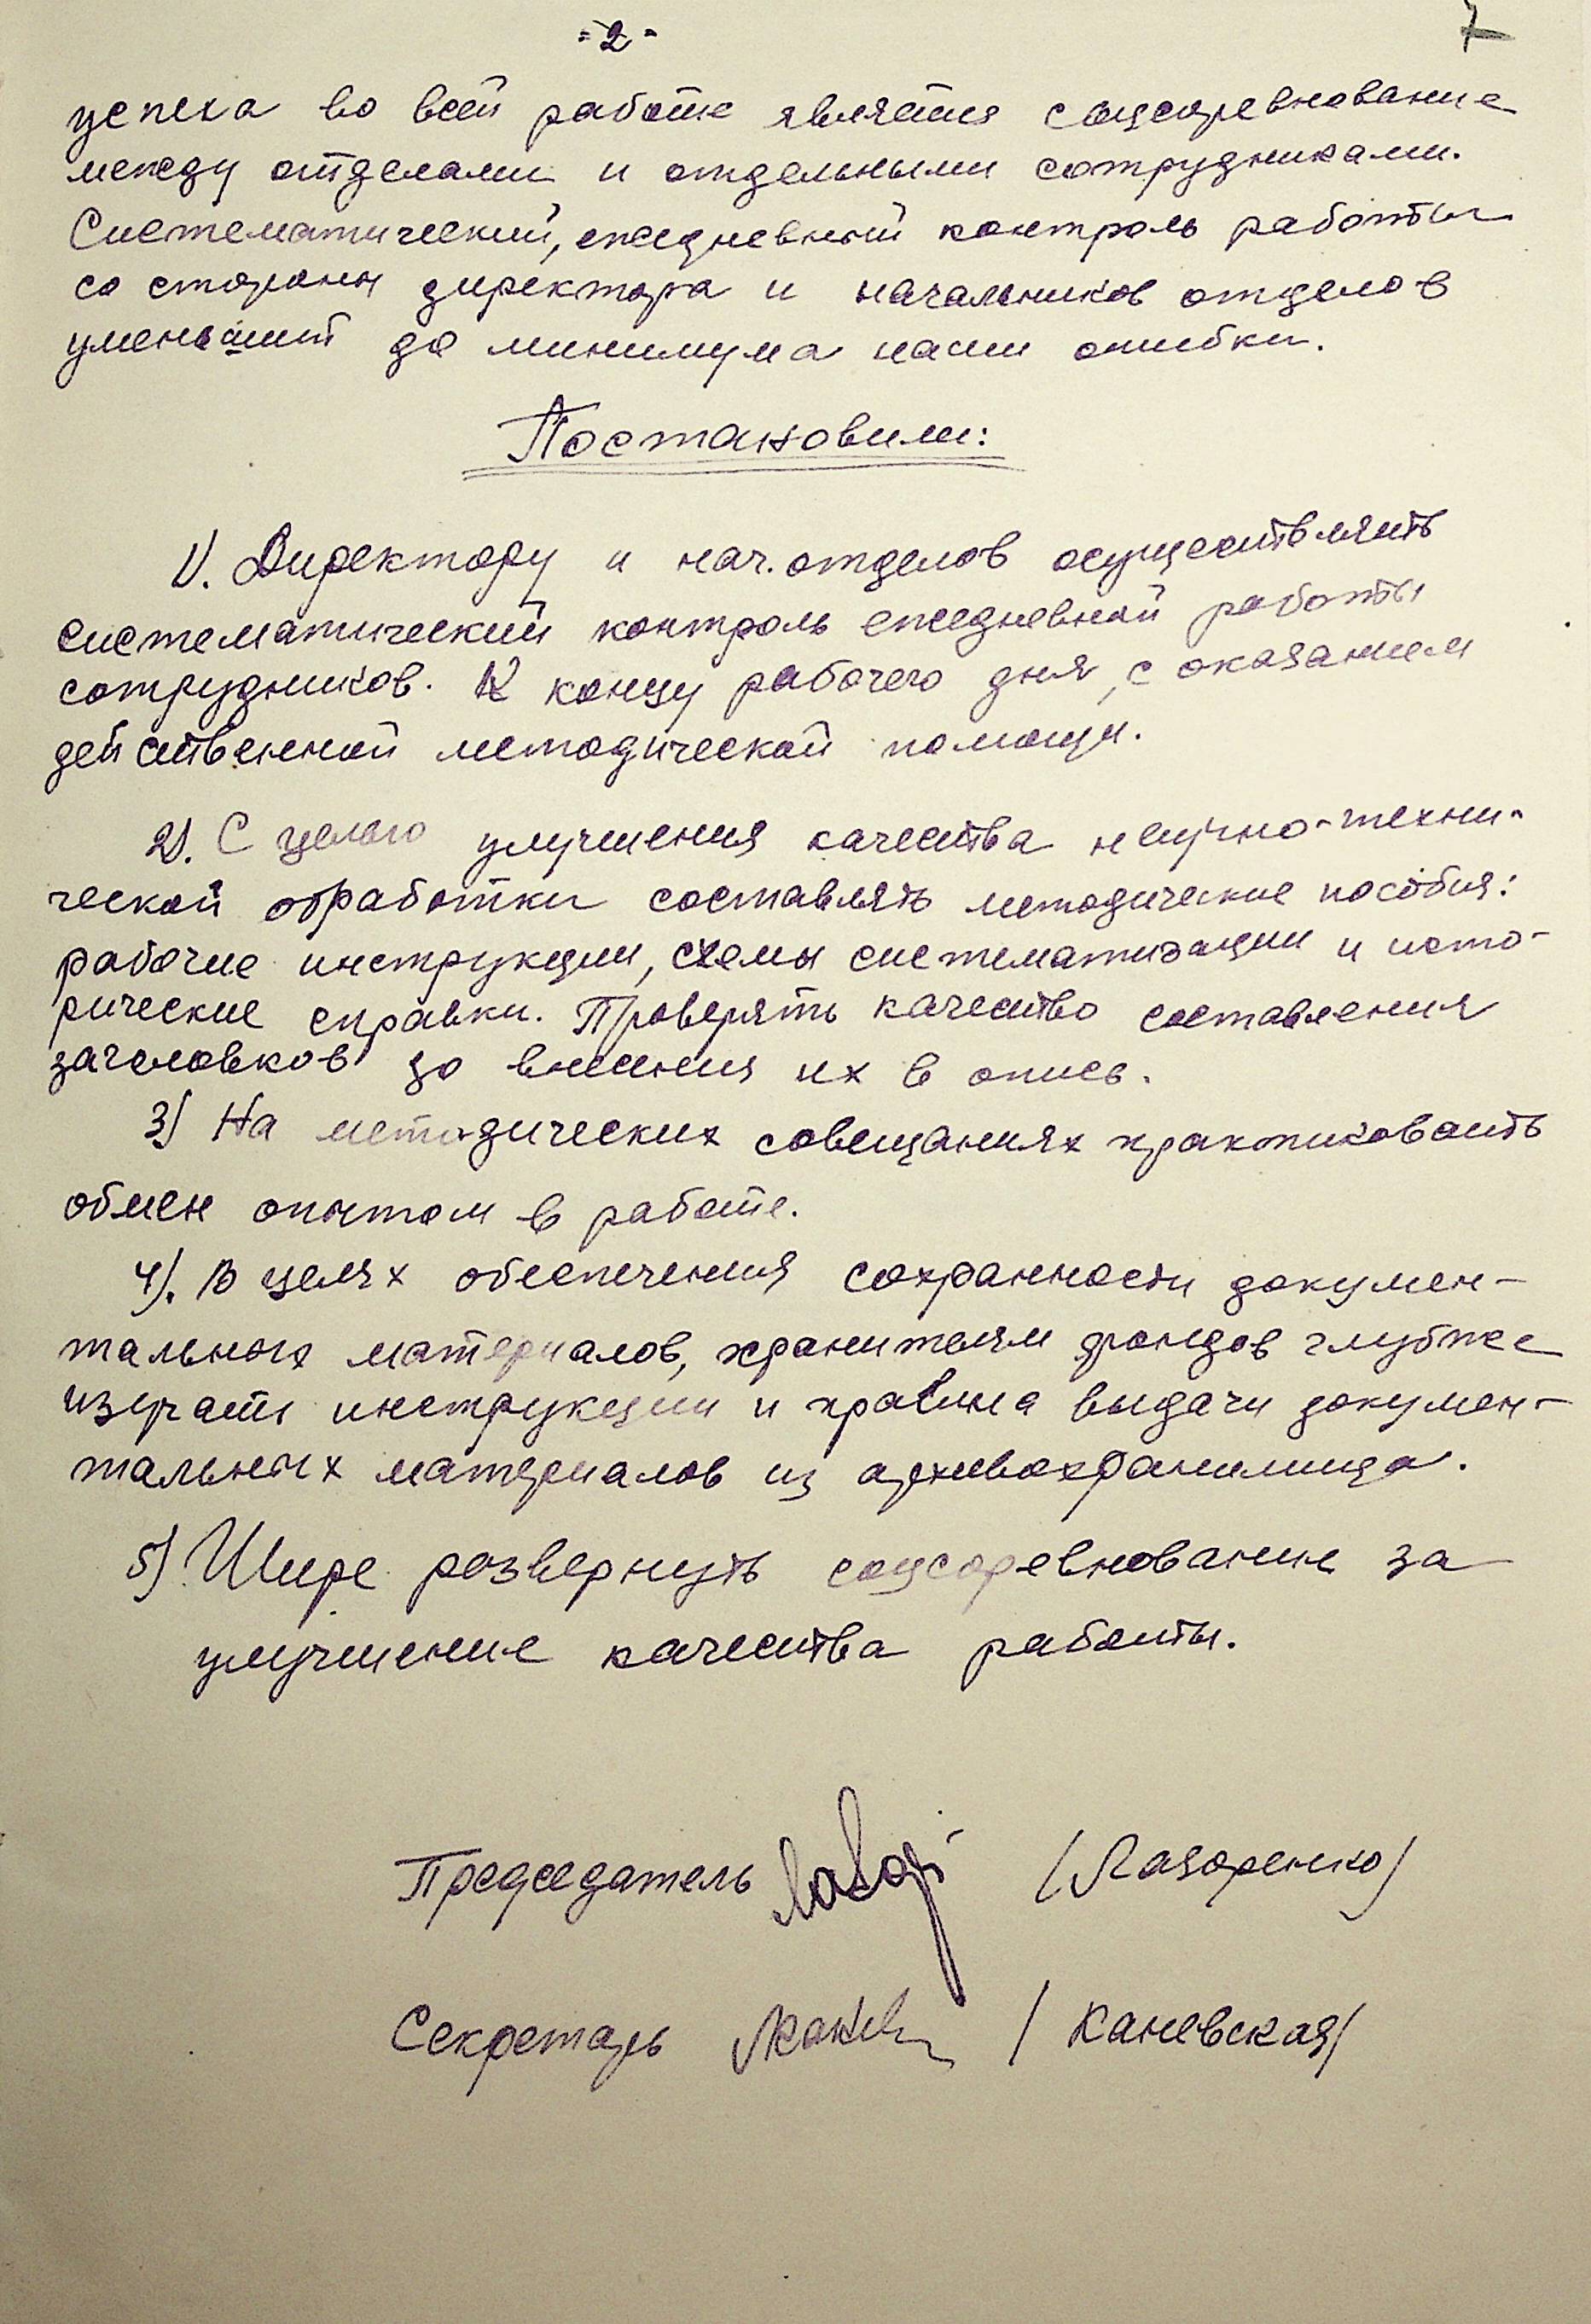 = 2 -
7
успеха во всей работе является соцсоревнование
между отделами и отдельными сотрудниками.
Систематический, ежедневный контроль работы
со стороны директора и начальников отделов
уменьшит до минимума наши ошибки.
Постановили:
1). Директору и нач. отделов осуществлять
систематический контроль ежедневной работы
сотрудников. К концу рабочего дня, с оказанием
действенной методической помощи.
2). С целью улучшения качества научно-техни-
ческой обработки составлять методические пособия:
рабочие инструкции, схемы систематизации и исто-
рические справки. Проверять качество составления
заголовков до внесения их в опись.
3) На методических совещаниях практиковать
обмен опытом в работе.
4). В целях обеспечения сохранности докумен-
тальных материалов, хранителям фондов глубже
изучать инструкции и правила выдачи докумен-
тальных материалов из архивохранилища.
5) Шире развернуть соцсоревнование за
улучшение качества работы.
Председатель (Лазоренко)
Секретарь / Каневская/